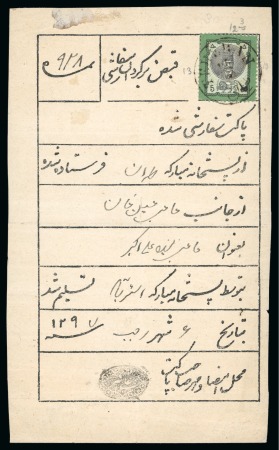 نمره ۹۲۸
قبض برگردان سفارشی
پاکت سفارشی شده
از پستخانه مبارکه طهران فرستاده شد
از جانب حاجی خان
بعنوان حاجی علی اکبر
بتوسط پستخانه مبارکه استرآباد تسلیم شد
بتاریخ ۶ شهر رجب سنه ۱۲۹۷
محل امضا و مهر صاحب پاکت